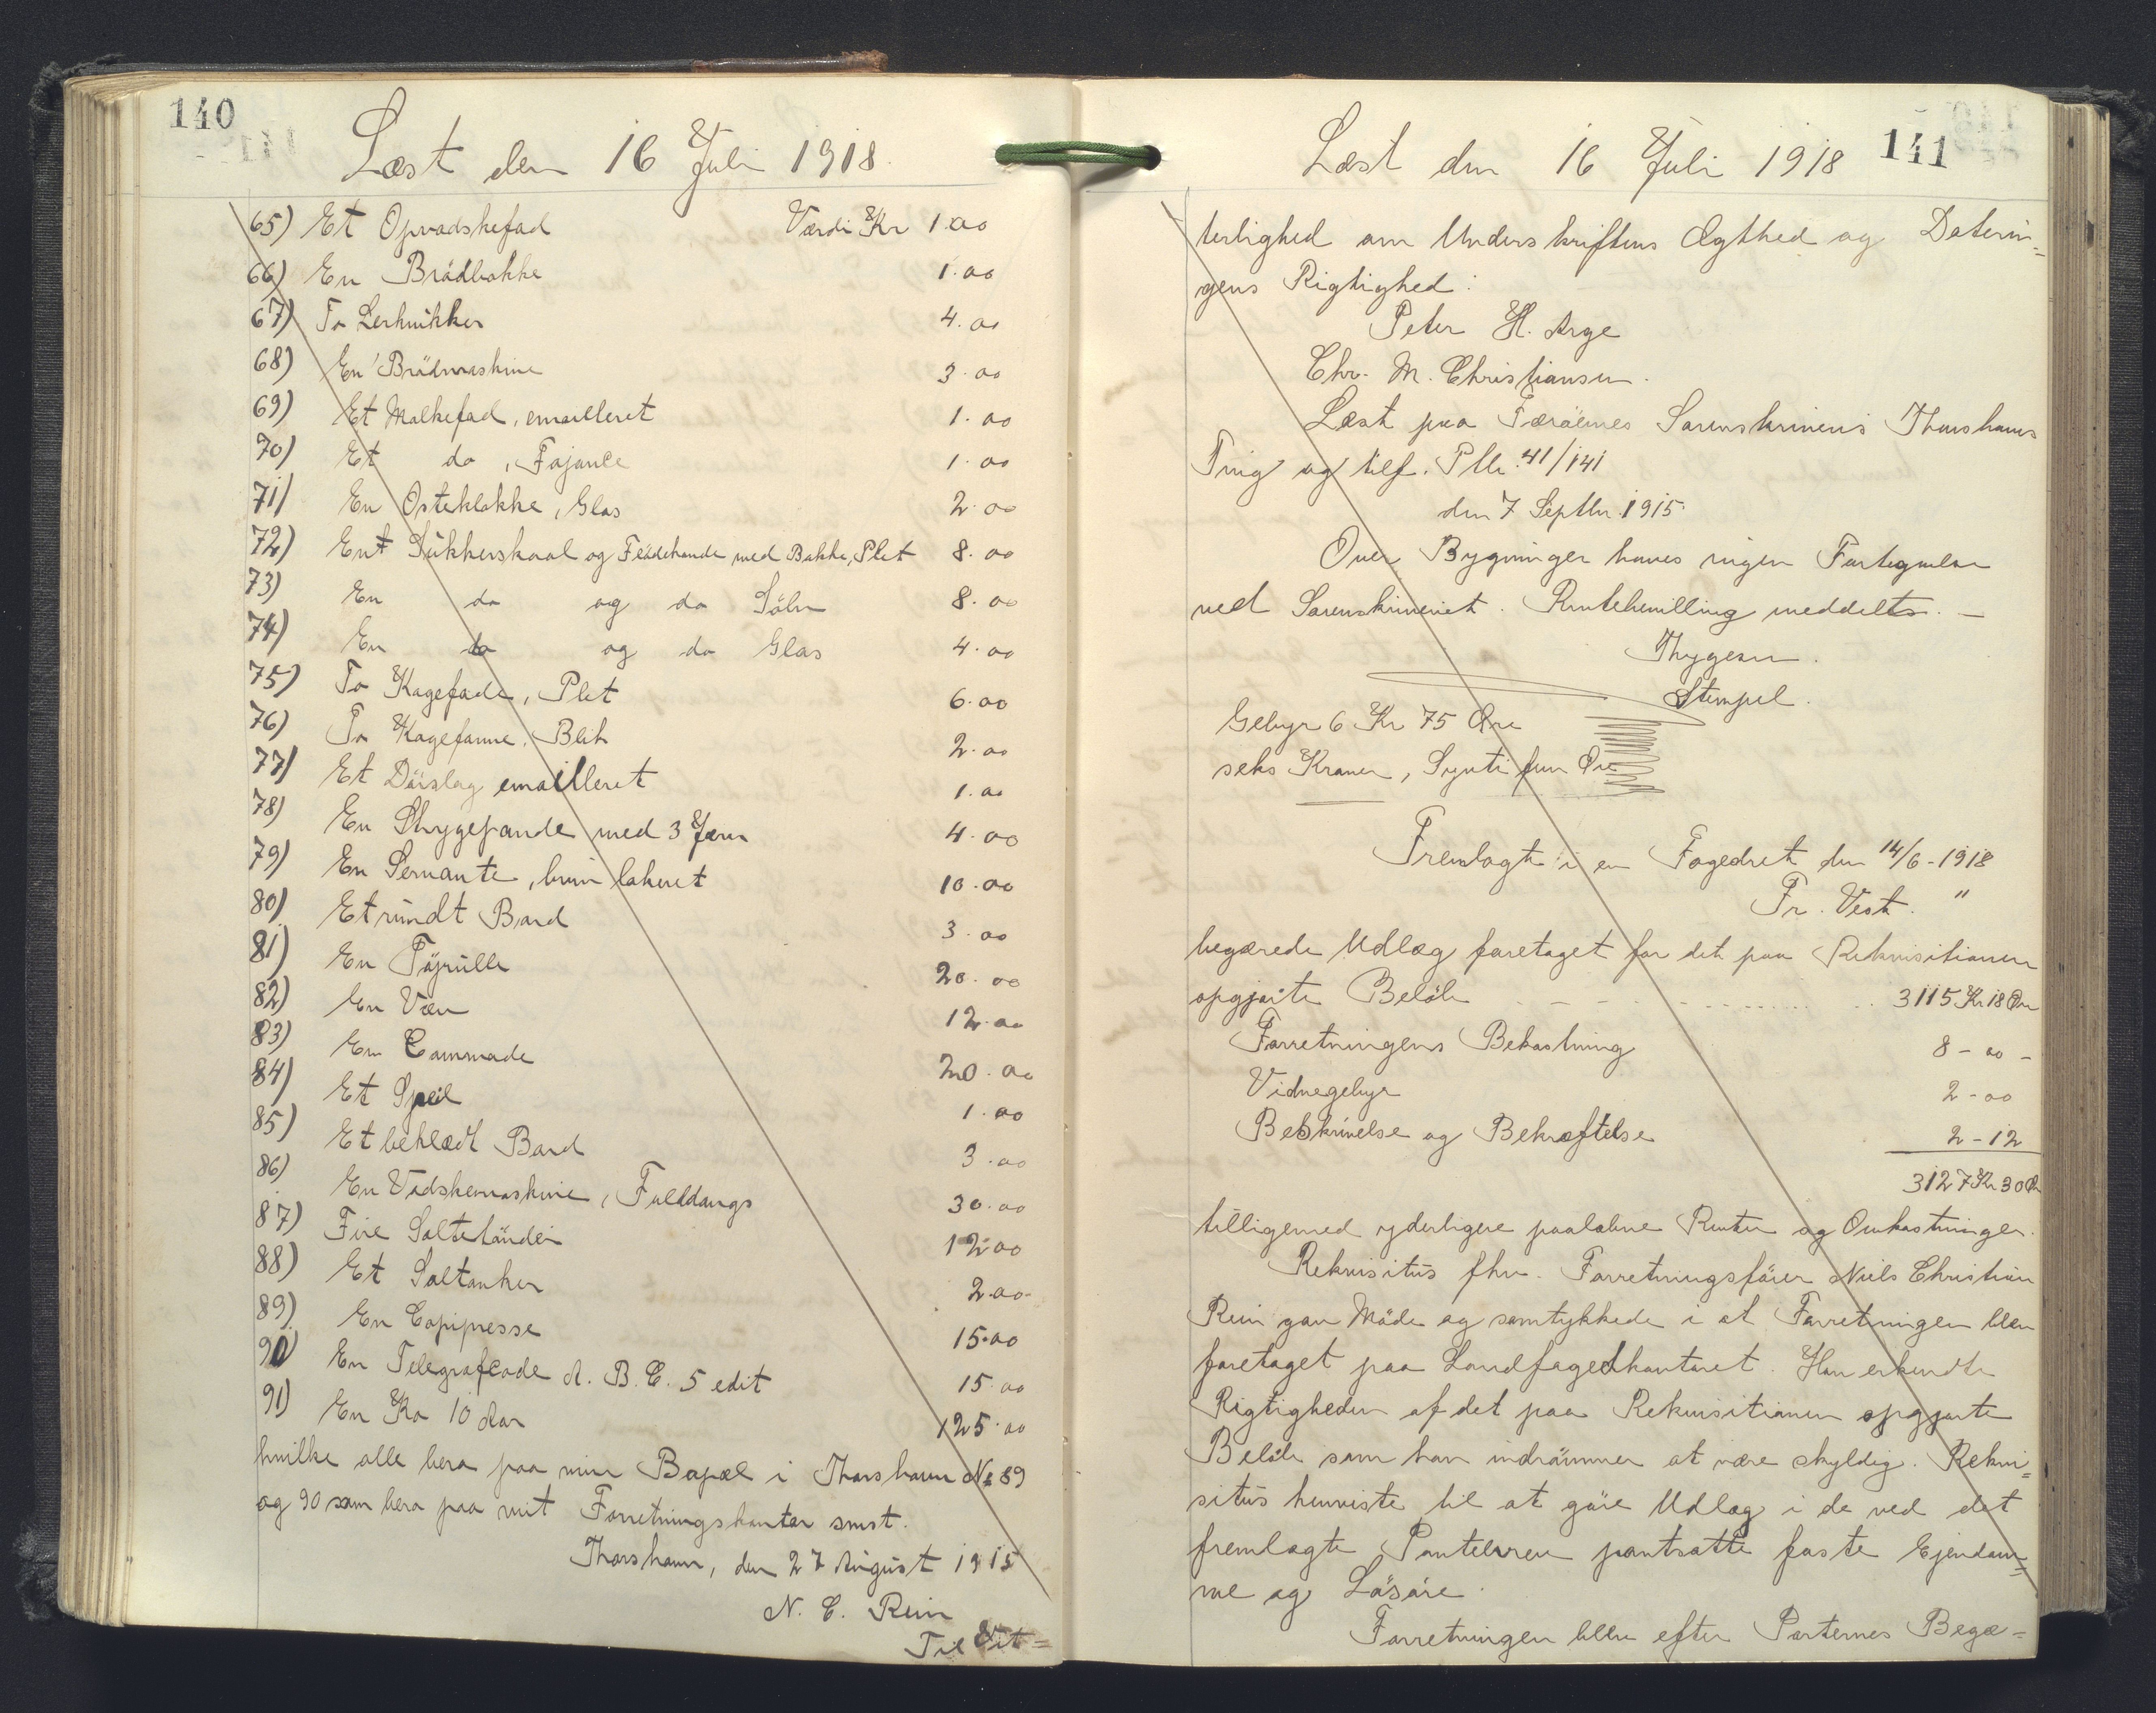 140
Læst den 16 Juli 1918.
65) Et Opvadskefad Værdi Kr 1.00
66) En Brödbakke 1.00
67) To Lerkrükker 4.00
68) En Brödmaskine 3.00
69) Et Malkefad, emailleret 1.00
70) Et do, Fajance 1.00
71) En Osteklokke, Glas 2.00
72) Ent Sükkerskaal og Flödekande med Bakke, Plet 8.00
73) En do og do Sölv 8.00
74) En do og do Glas 4.00
75) To Kagefade, Plet 6.00
76) To Kagefanme, Blik 2.00
77) Et Dörslag emailleret 1.00
78) En Strygepande med 3 Jern 4.00
79) En Servante, brun lakeret 10.00
80) Et rundt Bord 3.00
81) En Töjrülle 20.00
82) En Væv 12.00
83) En Commode 20.00
84) Et Speil 1.00
85) Et beklædt Bord 3.00
86) En Vadskemaskine, Fulldangs 30.00
87) Fire Saltetönder 12.00
88) Et Saltanker 2.00
89) En Copipresse 15.00
90) En Telegrafcode A. B. C. 5 edit 15.00
91) En Ko 10 Aar 125.00
hvilke alle bero paa min Bopæl i Thorshavn No 89
og 90 som bero paa mit Forretningskontor smst.
Thorshavn, den 27 August 1915
N. C. Rein
Til Vit=
141
Læst den 16 Juli 1918
terlighed om Underskriftens Ægthed og Daterin=
gens Rigtighed:
Peter H. Arge
Chr. M. Christiansen.
Læst paa Færöernes Sorenskriveris Thorshavns
Ting og tilf. Ptbr. 41/141
den 7 Septbr. 1915.
Over Bygninger haves ingen Fortegnelse
ved Sorenskriveriet. Rentebevilling meddelts. —
Thygesen.
Stempel.
Gebyr 6 Kr 75 Øre
seks Kroner, Syvti fem Øre
Fremlagt i en Fogedret den 14/6-1918
Fr. Vest. "
begærede Udlæg foretaget for det paa Rekvisitionen
opgjorte Belöb 3115 Kr 18 Øre
Forretningens Bekostning 8 - 00 -
Vidnegebyr 2 - 00
Beskrivelse og Bekræftelse 2 - 12
3127 Kr 30 Ør
tilligemed yderligere paalöbne Renter og Omkostninger.
Rekvisitüs fhv. Forretningsförer Niels Christian
Rein gav Möde og samtykkede i at Forretningen blev
foretaget paa Landfogedkontoret. Han erkendte
Rigtigheden af det paa Rekvisitionen opgjorte
Belöb som han indrömmer at være skyldig. Rekvi=
sitüs henviste til at göre Udlæg i de ved det
fremlagte Pantebrev pantsatte faste Ejendom=
me og Lösöre.
Forretningen blev efter Parternes Begæ=